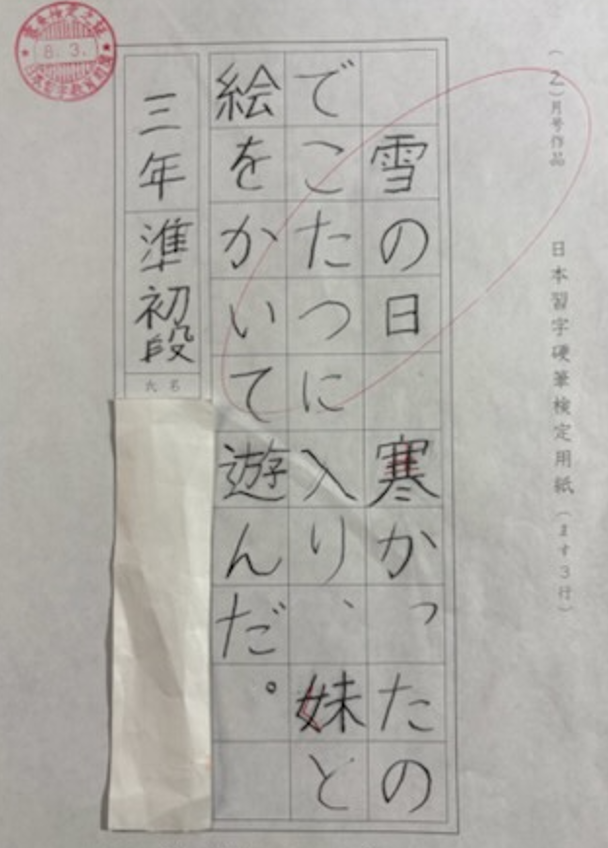 （2）月号作品
日本習字硬筆検定用紙（ます3行）
雪の日　寒かったの
でこたつに入り、妹と
絵をかいて遊んだ。
三年 準初段
氏名
8.3.